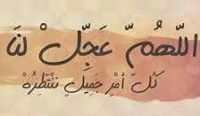 اللّهُمّ عَجِّلْ لنَا
كلّ أمْرٍ جَميلٍ ننْتَظِرُهْ